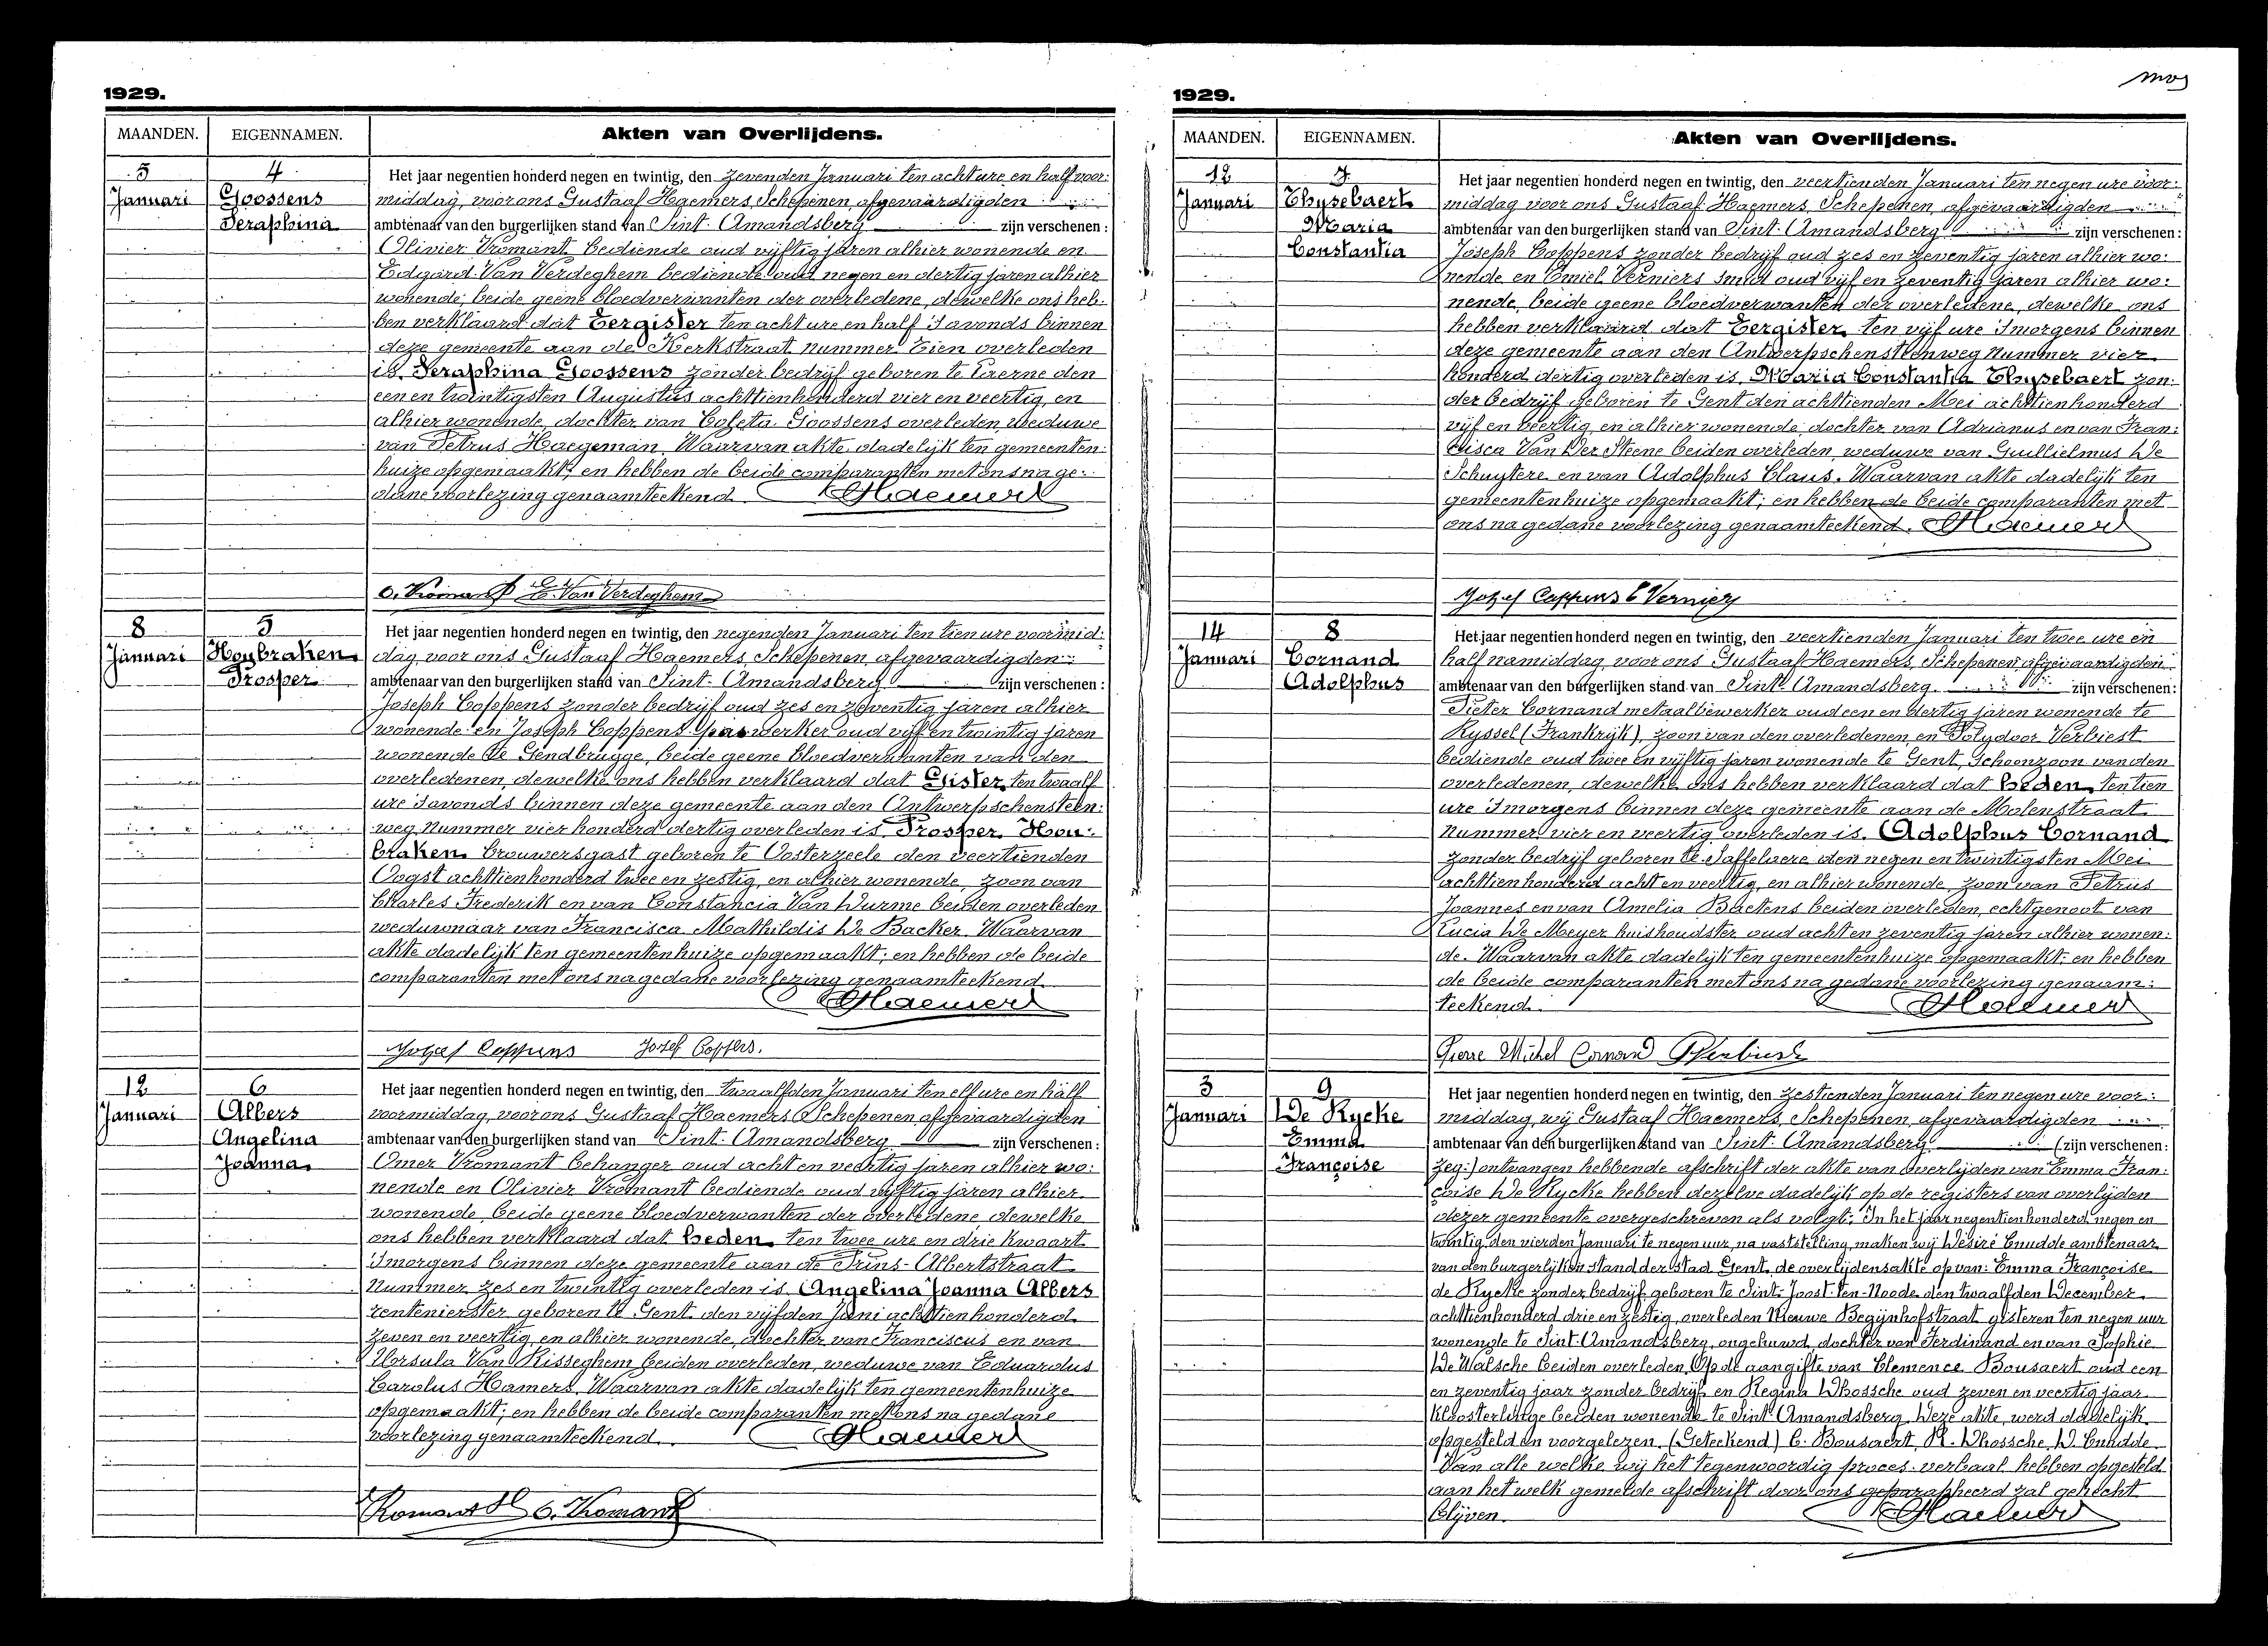 1929.
MAANDEN. EIGENNAMEN. Akten van Overlijdens.
5 4
Januari Goossens Seraphina
Het jaar negentien honderd negen en twintig, den zevenden Januari ten acht ure en half voor:
middag, voor ons Gustaaf Haemers, Schepenen, afgevaardigden
ambtenaar van den burgerlijken stand van Sint-Amandsberg zijn verschenen:
Olivier Vromant bediende oud vijftig jaren alhier wonende en
Edgard Van Verdeghem bediende oud negen en dertig jaren alhier
wonende; beide geene bloedverwanten der overledene, dewelke ons heb-
ben verklaard dat Eergister ten acht ure en half 's avonds binnen
deze gemeente aan de Kerkstraat nummer tien overleden
is, Seraphina Goossens zonder bedrijf geboren te Everne den
een en twintigsten Augustus achttienhonderd vier en veertig, en
alhier wonende, dochter van Coleta Goossens overleden, weduwe
van Petrus Haegeman. Waarvan akte dadelijk ten gemeenten-
huize opgemaakt; en hebben de beide comparanten met ons na ge-
dane voorlezing genaamteekend. GHaemers
O. Vromant E. Van Verdeghem
8 5
Januari Houbraken Prosper
Het jaar negentien honderd negen en twintig, den negenden Januari ten tien ure voormid:
dag, voor ons Gustaaf Haemers, Schepenen, afgevaardigden
ambtenaar van den burgerlijken stand van Sint-Amandsberg zijn verschenen:
Joseph Coppens zonder bedrijf oud zes en zeventig jaren alhier
wonende en Joseph Coppens gaswerker oud vijf en twintig jaren
wonende te Gendbrugge, beide geene bloedverwanten van den
overledenen, dewelke ons hebben verklaard dat Gister, ten twaalf
ure 's avonds binnen deze gemeente aan den Antwerpschensteen:
weg nummer vier honderd dertig overleden is, Prosper Hou:
braken brouwersgast geboren te Oosterzeele den veertienden
Oogst achttienhonderd twee en zestig, en alhier wonende, zoon van
Charles Frederik en van Constancia Van Durme beiden overleden
weduwnaar van Francisca Mathildis De Backer. Waarvan
akte dadelijk ten gemeentenhuize opgemaakt; en hebben de beide
comparanten met ons na gedane voorlezing genaamteekend.
GHaemers
Jozef Coppens Josef Coppens.
12 6
Januari Albers Angelina Joanna
Het jaar negentien honderd negen en twintig, den twaalfden Januari ten elf ure en half
voormiddag, voor ons Gustaaf Haemers Schepenen afgevaardigden
ambtenaar van den burgerlijken stand van Sint-Amandsberg zijn verschenen:
Omer Vromant behanger oud acht en veertig jaren alhier wo:
nende en Olivier Vromant bediende oud vijftig jaren alhier
wonende, beide geene bloedverwanten der overledene dewelke
ons hebben verklaard dat heden, ten twee ure en drie kwaart
's morgens binnen deze gemeente aan de Prins-Albertstraat
nummer zes en twintig overleden is, Angelina Joanna Albers
rentenierster geboren te Gent den vijfden Juni achttienhonderd
zeven en veertig, en alhier wonende, dochter van Franciscus en van
Ursula Van Risseghem beiden overleden, weduwe van Eduardus
Carolus Hamers. Waarvan akte dadelijk ten gemeentenhuize
opgemaakt; en hebben de beide comparanten met ons na gedane
voorlezing genaamteekend. GHaemers
Vromant O. Vromant
1929.
MAANDEN. EIGENNAMEN. Akten van Overlijdens.
12 7
Januari Thysebaert Maria Constantia
Het jaar negentien honderd negen en twintig, den veertienden Januari ten negen ure voor:
middag voor ons Gustaaf Haemers, Schepenen, afgevaardigden
ambtenaar van den burgerlijken stand van Sint-Amandsberg zijn verschenen:
Joseph Coppens zonder bedrijf oud zes en zeventig jaren alhier wo:
nende en Emiel Verniers smid oud vijf en zeventig jaren alhier wo:
nende, beide geene bloedverwanten der overledene, dewelke ons
hebben verklaard dat Eergister, ten vijf ure 's morgens binnen
deze gemeente aan den Antwerpschensteenweg nummer vier
honderd dertig overleden is, Maria Constantia Thysebaert zon:
der bedrijf geboren te Gent den achttienden Mei achttienhonderd
vijf en veertig, en alhier wonende, dochter van Adrianus en van Fran:
cisca Van Der Steene beiden overleden, weduwe van Guillielmus De
Schuytere en van Adolphus Claus. Waarvan akte dadelijk ten
gemeentenhuize opgemaakt; en hebben de beide comparanten met
ons na gedane voorlezing genaamteekend. GHaemers
Jozef Coppens E Verniers
14 8
Januari Cornand Adolphus
Het jaar negentien honderd negen en twintig, den veertienden Januari ten twee ure en
half namiddag, voor ons Gustaaf Haemers, Schepenen, afgevaardigden
ambtenaar van den burgerlijken stand van Sint-Amandsberg zijn verschenen:
Pieter Cornand metaalbewerker oud een en dertig jaren wonende te
Ryssel (Frankrijk), zoon van den overledenen, en Polydoor Verbiest
bediende oud twee en vijftig jaren wonende te Gent, Schoonzoon van den
overledenen, dewelke ons hebben verklaard dat heden, ten tien
ure 's morgens binnen deze gemeente aan de Molenstraat
nummer vier en veertig overleden is, Adolphus Cornand
zonder bedrijf geboren te Saffelaere den negen en twintigsten Mei
achttienhonderd acht en veertig, en alhier wonende, zoon van Petrus
Joannes en van Amelia Baetens beiden overleden, echtgenoot van
Lucia De Meyer huishoudster oud acht en zeventig jaren alhier wonen:
de. Waarvan akte dadelijk ten gemeentenhuize opgemaakt; en hebben
de beide comparanten met ons na gedane voorlezing genaam:
teekend. GHaemers
Pierre Michel Cornand PVerbiest
3 9
Januari De Rycke Emma Françoise
Het jaar negentien honderd negen en twintig, den zestienden Januari ten negen ure voor:
middag, wij Gustaaf Haemers, Schepenen, afgevaardigden
ambtenaar van den burgerlijken stand van Sint-Amandsberg (zijn verschenen:
zeg:) ontvangen hebbende afschrift der akte van overlijden van Emma Fran:
çoise De Rycke hebben dezelve dadelijk op de registers van overlijden
dezer gemeente overgeschreven als volgt: In het jaar negentienhonderd negen en
twintig, den vierden Januari te negen uur, na vaststelling, maken wij Désiré Cnudde ambtenaar
van den burgerlijken stand der stad Gent, de overlijdensakte op van: Emma Françoise
de Rycke zonder bedrijf, geboren te Sint-Joost-ten-Noode, den twaalfden December
achttienhonderd drie en zestig, overleden Nieuwe Begijnhofstraat, gisteren ten negen uur
wonende te Sint-Amandsberg, ongehuwd, dochter van Ferdinand en van Sophie
De Walsche beiden overleden. Op de aangifte van Clemence Bousaert oud een
en zeventig jaar zonder bedrijf en Regina Dhossche oud zeven en veertig jaar
kloosterlinge beiden wonende te Sint-Amandsberg. Deze akte, werd dadelijk
opgesteld en voorgelezen. (Geteekend) C. Bousaert, R. Dhossche, D. Cnudde.
Van alle welke wij het tegenwoordig proces-verbaal hebben opgesteld
aan het welk gemelde afschrift door ons geparapheerd zal gehecht
blijven. GHaemers